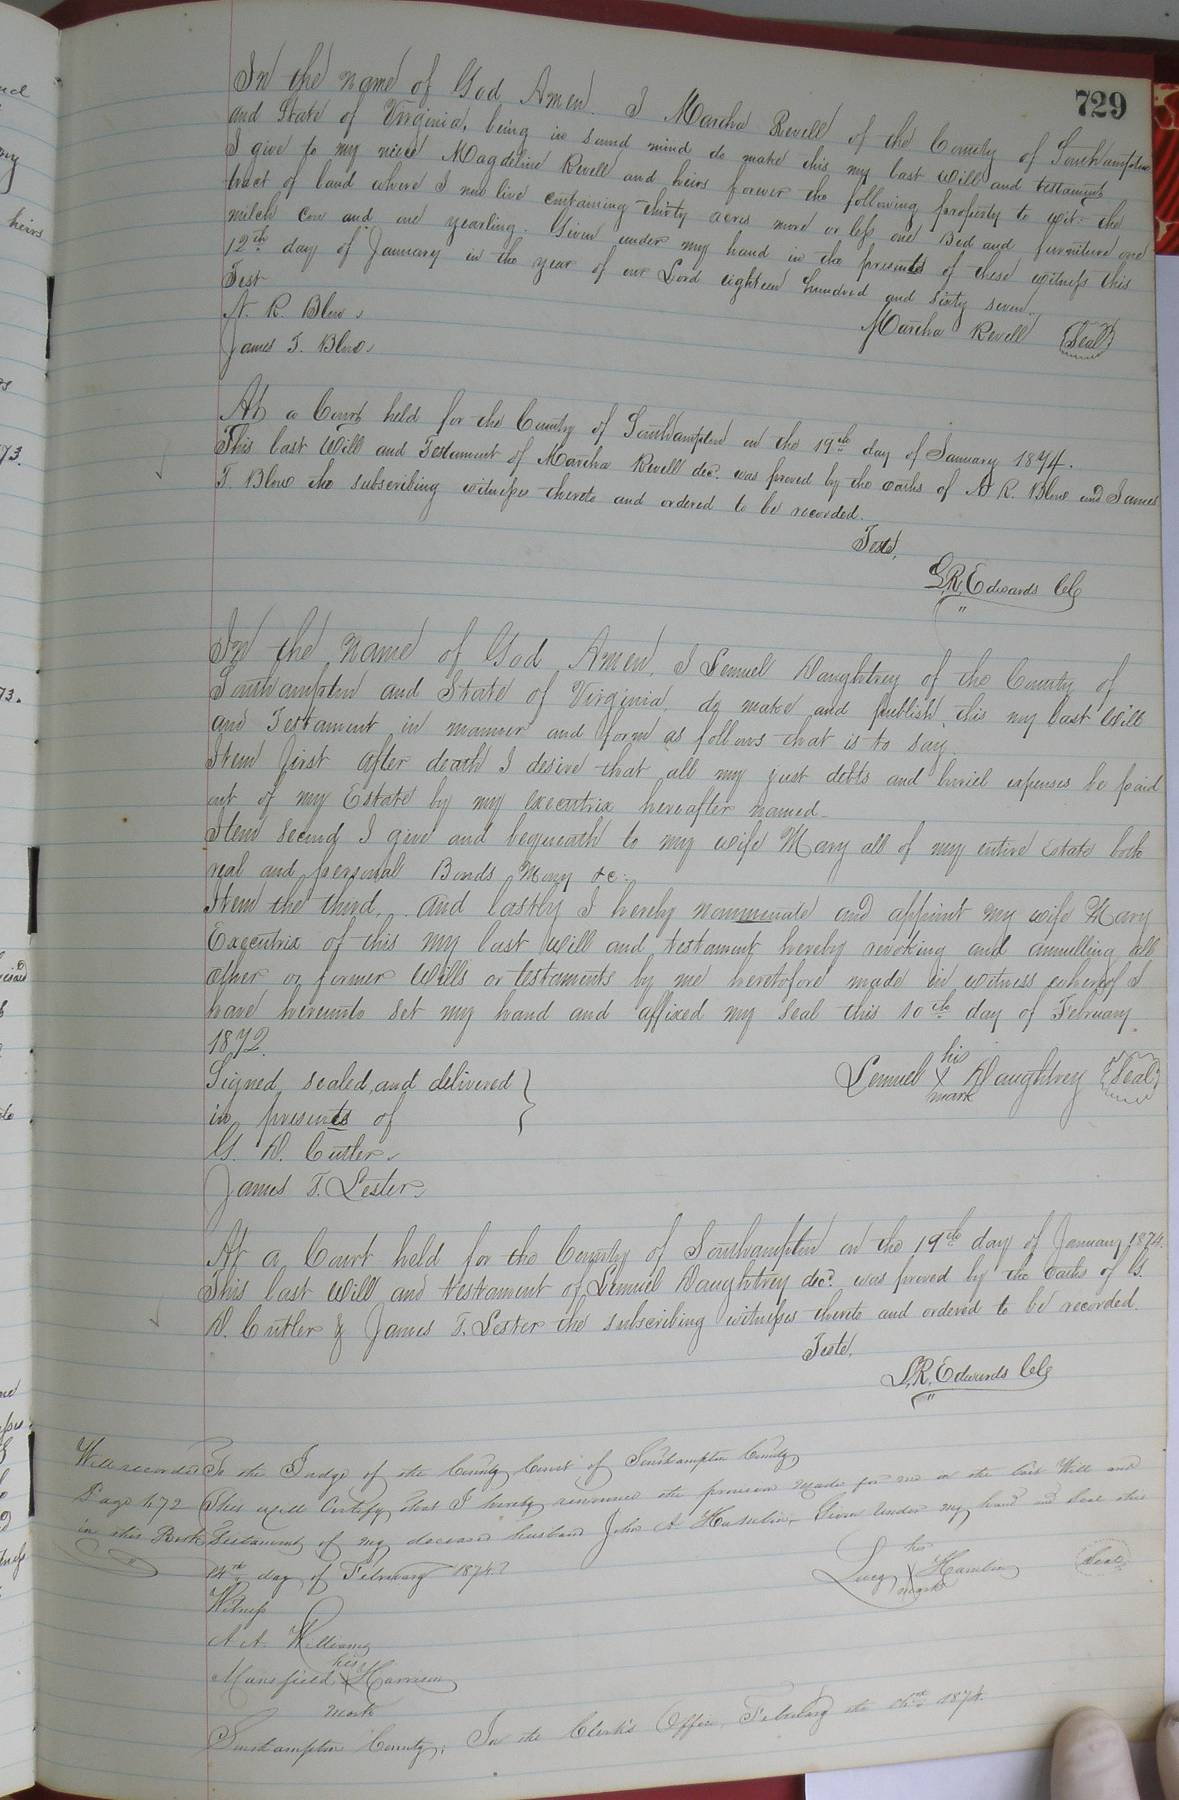 729
In the name of God Amen. I Martha Revell of the County of Southampton
and State of Virginia, being in sound mind do make this my last Will and testament
I give to my niece Magdeline Revell and heirs forever the following property to wit: the
tract of land where I now live containing thirty acres more or less one Bed and furniture one
milch cow and one yearling. Given under my hand in the presents of these witness this
12th day of January in the year of our Lord eighteen hundred and sixty seven.
Test
A. R. Blow
Martha Revell {Seal}
James T. Blow
At a Court held for the County of Southampton on the 19th day of January 1874.
This last Will and Testament of Martha Revell decd. was proved by the oaths of A R. Blow and James
T. Blow the subscribing witnesses thereto and ordered to be recorded.
Teste,
L.R. Edwards CC
In the name of God Amen, I Lemuel Daughtrey of the County of
Southampton and State of Virginia do make and publish this my last Will
and Testament in manner and form as follows that is to say.
Item first after death I desire that all my just debts and buriel expenses be paid
out of my Estate by my executrix hereafter named.
Item Second I give and bequeath to my wife Mary all of my entire Estate both
real and personal Bonds Money &c.
Item the third. and lastly I hereby nominate and appoint my wife Mary
Executrix of this my last Will and testament hereby revoking and annulling all
other or former Wills or testaments by me heretofore made in witness whereof I
have hereunto set my hand and affixed my Seal this 10th day of February
1872.
Signed, sealed, and delivered }
his
Lemuel X Daughtrey {Seal}
mark
in presents of
G. D. Cutler
James T. Lester
At a Court held for the County of Southampton on the 19th day of January 1874.
This last Will and testament of Lemuel Daughtrey decd. was proved by the oaths of G.
D. Cutler & James T. Lester the subscribing witnesses thereto and ordered to be recorded.
Teste.
L.R. Edwards CC
Will recorded
Page 472
in this Book
To the Judge of the County Court of Southampton County
This will Certify that I hereby renounce the provision made for me in the last Will and
Testament of my deceased husband John A. Given under my hand and Seal this
14th day of February 1874.
her
Lucy X Hamlin Seal
mark
Witness
A A. Williams
his
Mansfield X Harrison
mark
Southampton County, In the Clerk's Office, February the 1874.